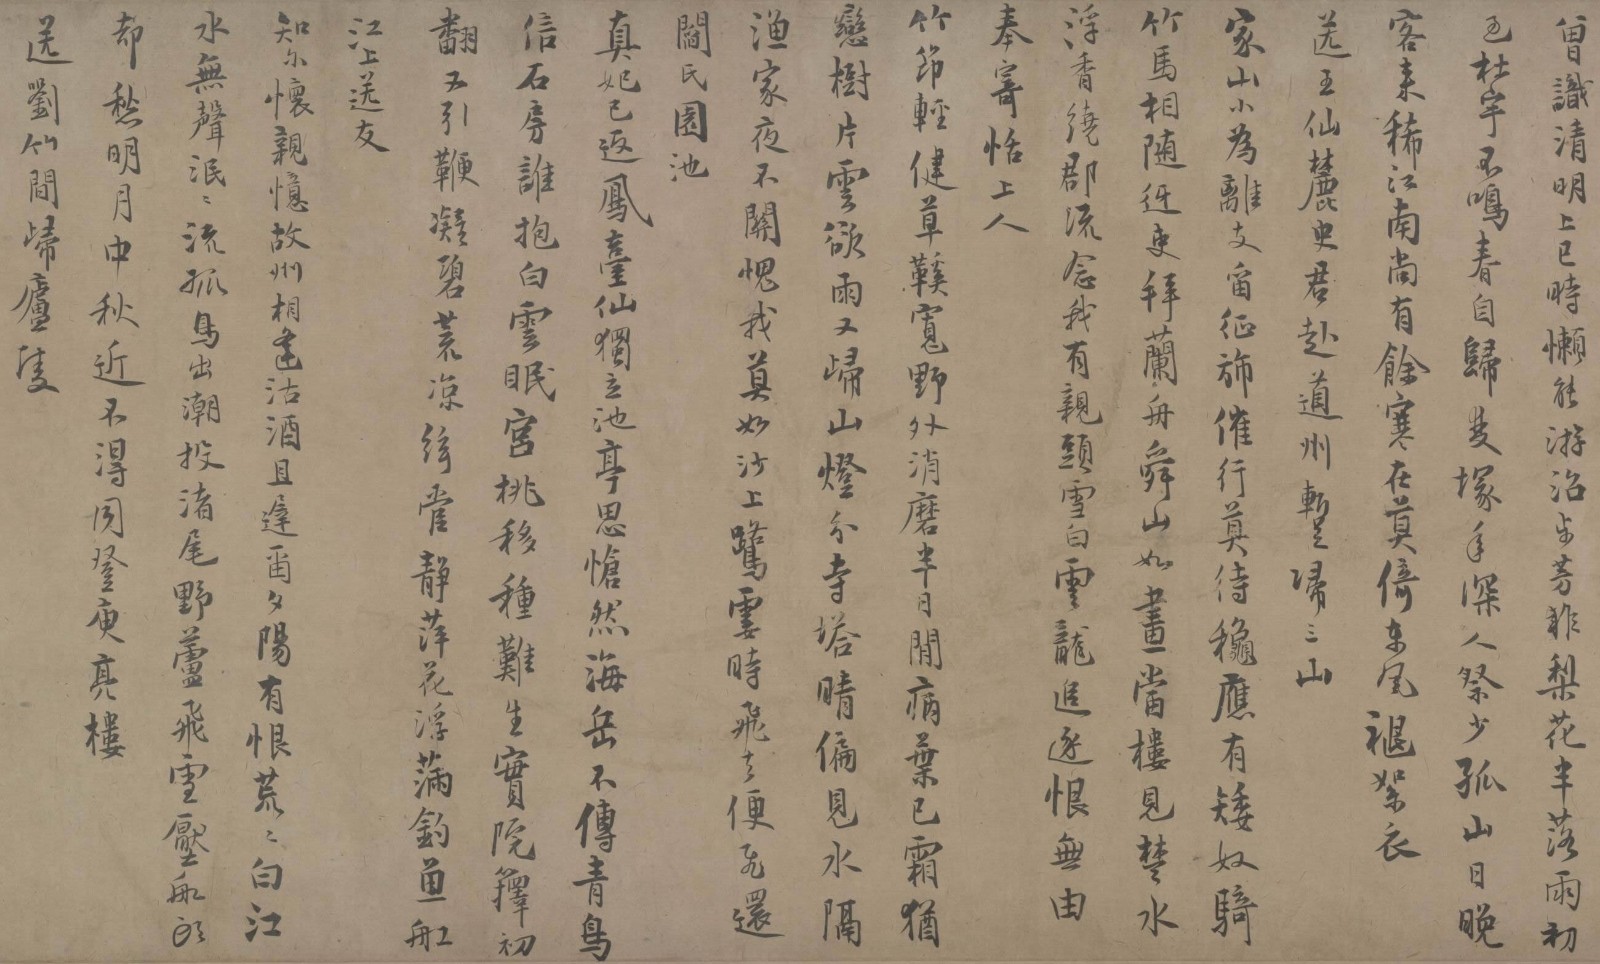 曾識清明上巳時懶能游冶步芳菲梨花半落雨初
過杜宇不鳴春自歸雙塚年深人祭少孤山日晚
客來稀江南尚有餘寒在莫倚東風褪絮衣
送王仙麓史君赴道州暫歸三山
家山小為離支留征斾催行莫待穐應有矮奴騎
竹馬相随迓吏拜蘭舟舜山如畫當樓見楚水
浮香繞郡流念我有親頭雪白雲龍追逐恨無由
奉寄恬上人
竹節輕健草鞵寬野外消磨半日閒病葉已霜猶
戀樹片雲欲雨又歸山燈分寺塔晴偏見水隔
漁家夜不關愧我莫如沙上鷺霎時飛去便飛還
閻氏園池
真妃已返鳳臺仙獨立池亭思愴然海岳不傳青鳥
信石房誰抱白雲眠宮桃移種難生實院籜初
翻又引鞭凝碧荒凉絃管靜萍花浮滿釣魚舡
江上送友
知尔懷親憶故州相逢沽酒且遲留夕陽有恨荒〻白江
水無聲泯〻流孤鳥出潮投渚尾野蘆飛雪壓船頭
却愁明月中秋近不得同登庾亮樓
送劉竹間歸廬陵